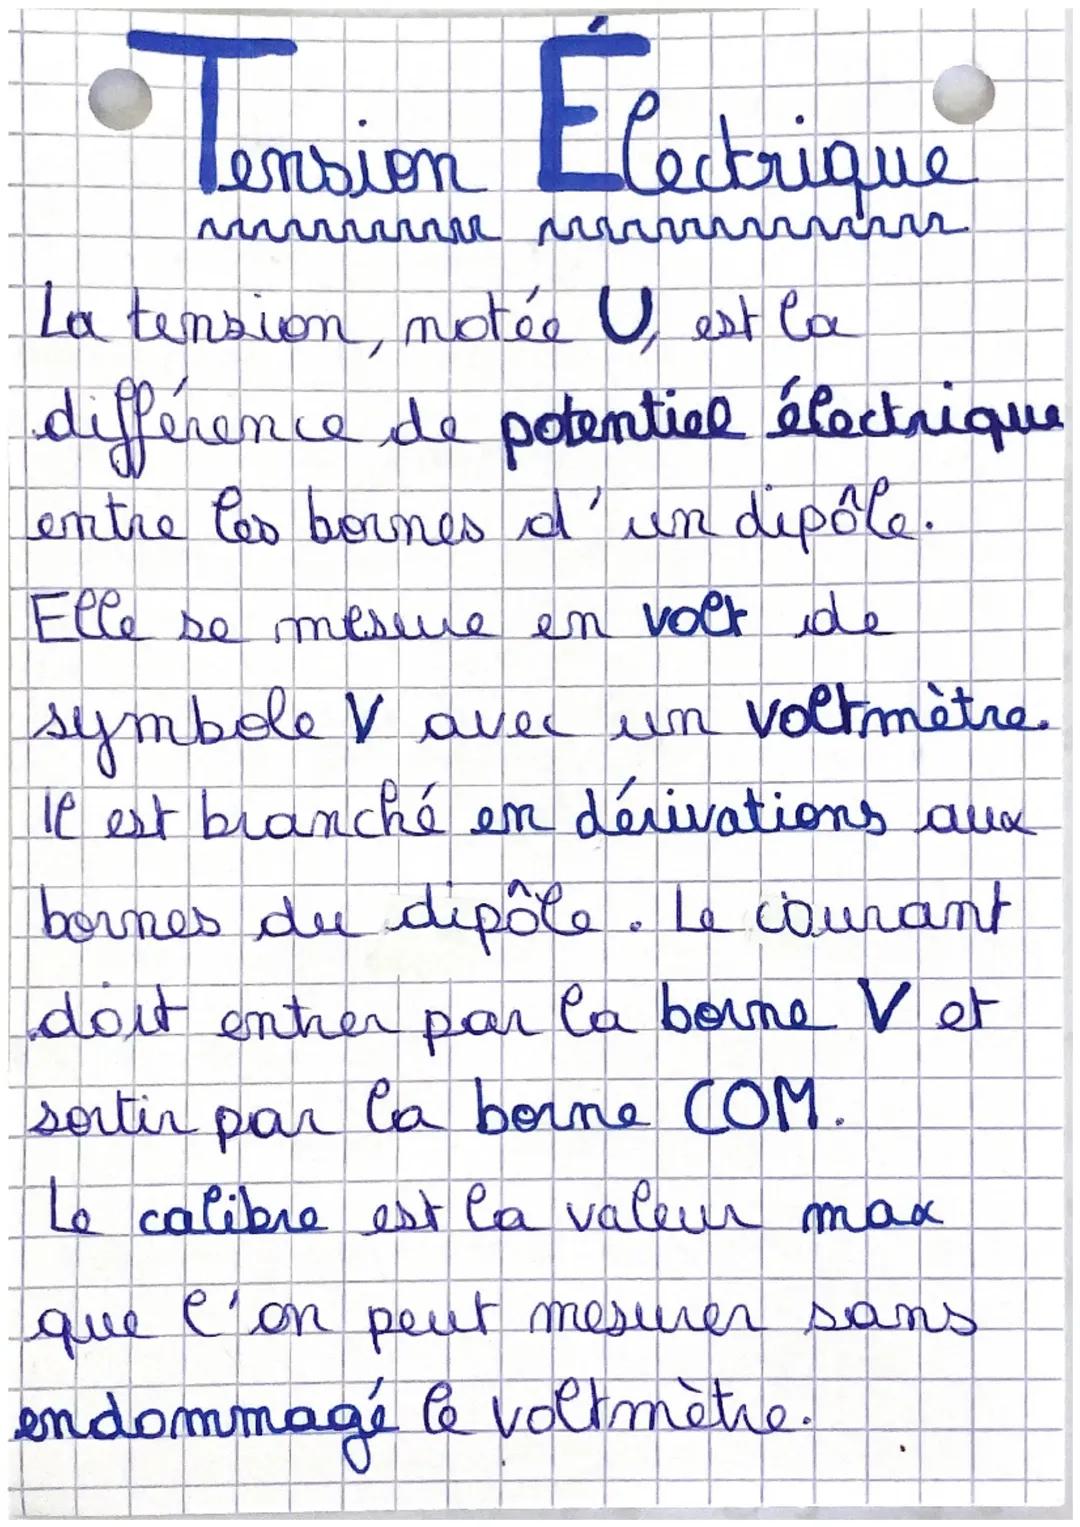 Tension Électrique
La tension, notée U, est la
différence de potentiel électrique
entre les bornes d'un dipôle.
Elle se mesure en volt de
symbole V avec un voltmètre.
Il est branché en dérivations aux
bornes du dipôle. Le courant
doit entrer par la borne V et
sortir par la borne COM.
Le calibre est la valeur max
que l'on peut mesurer sans
endommagé le voltmètre.